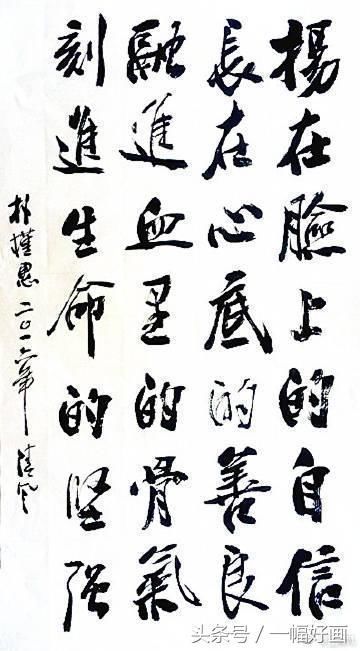 揚在臉上的自信
長在心底的善良
融進血里的骨氣
刻進生命的堅強
朴槿惠 二〇一六年 清風
头条号/一幅好画